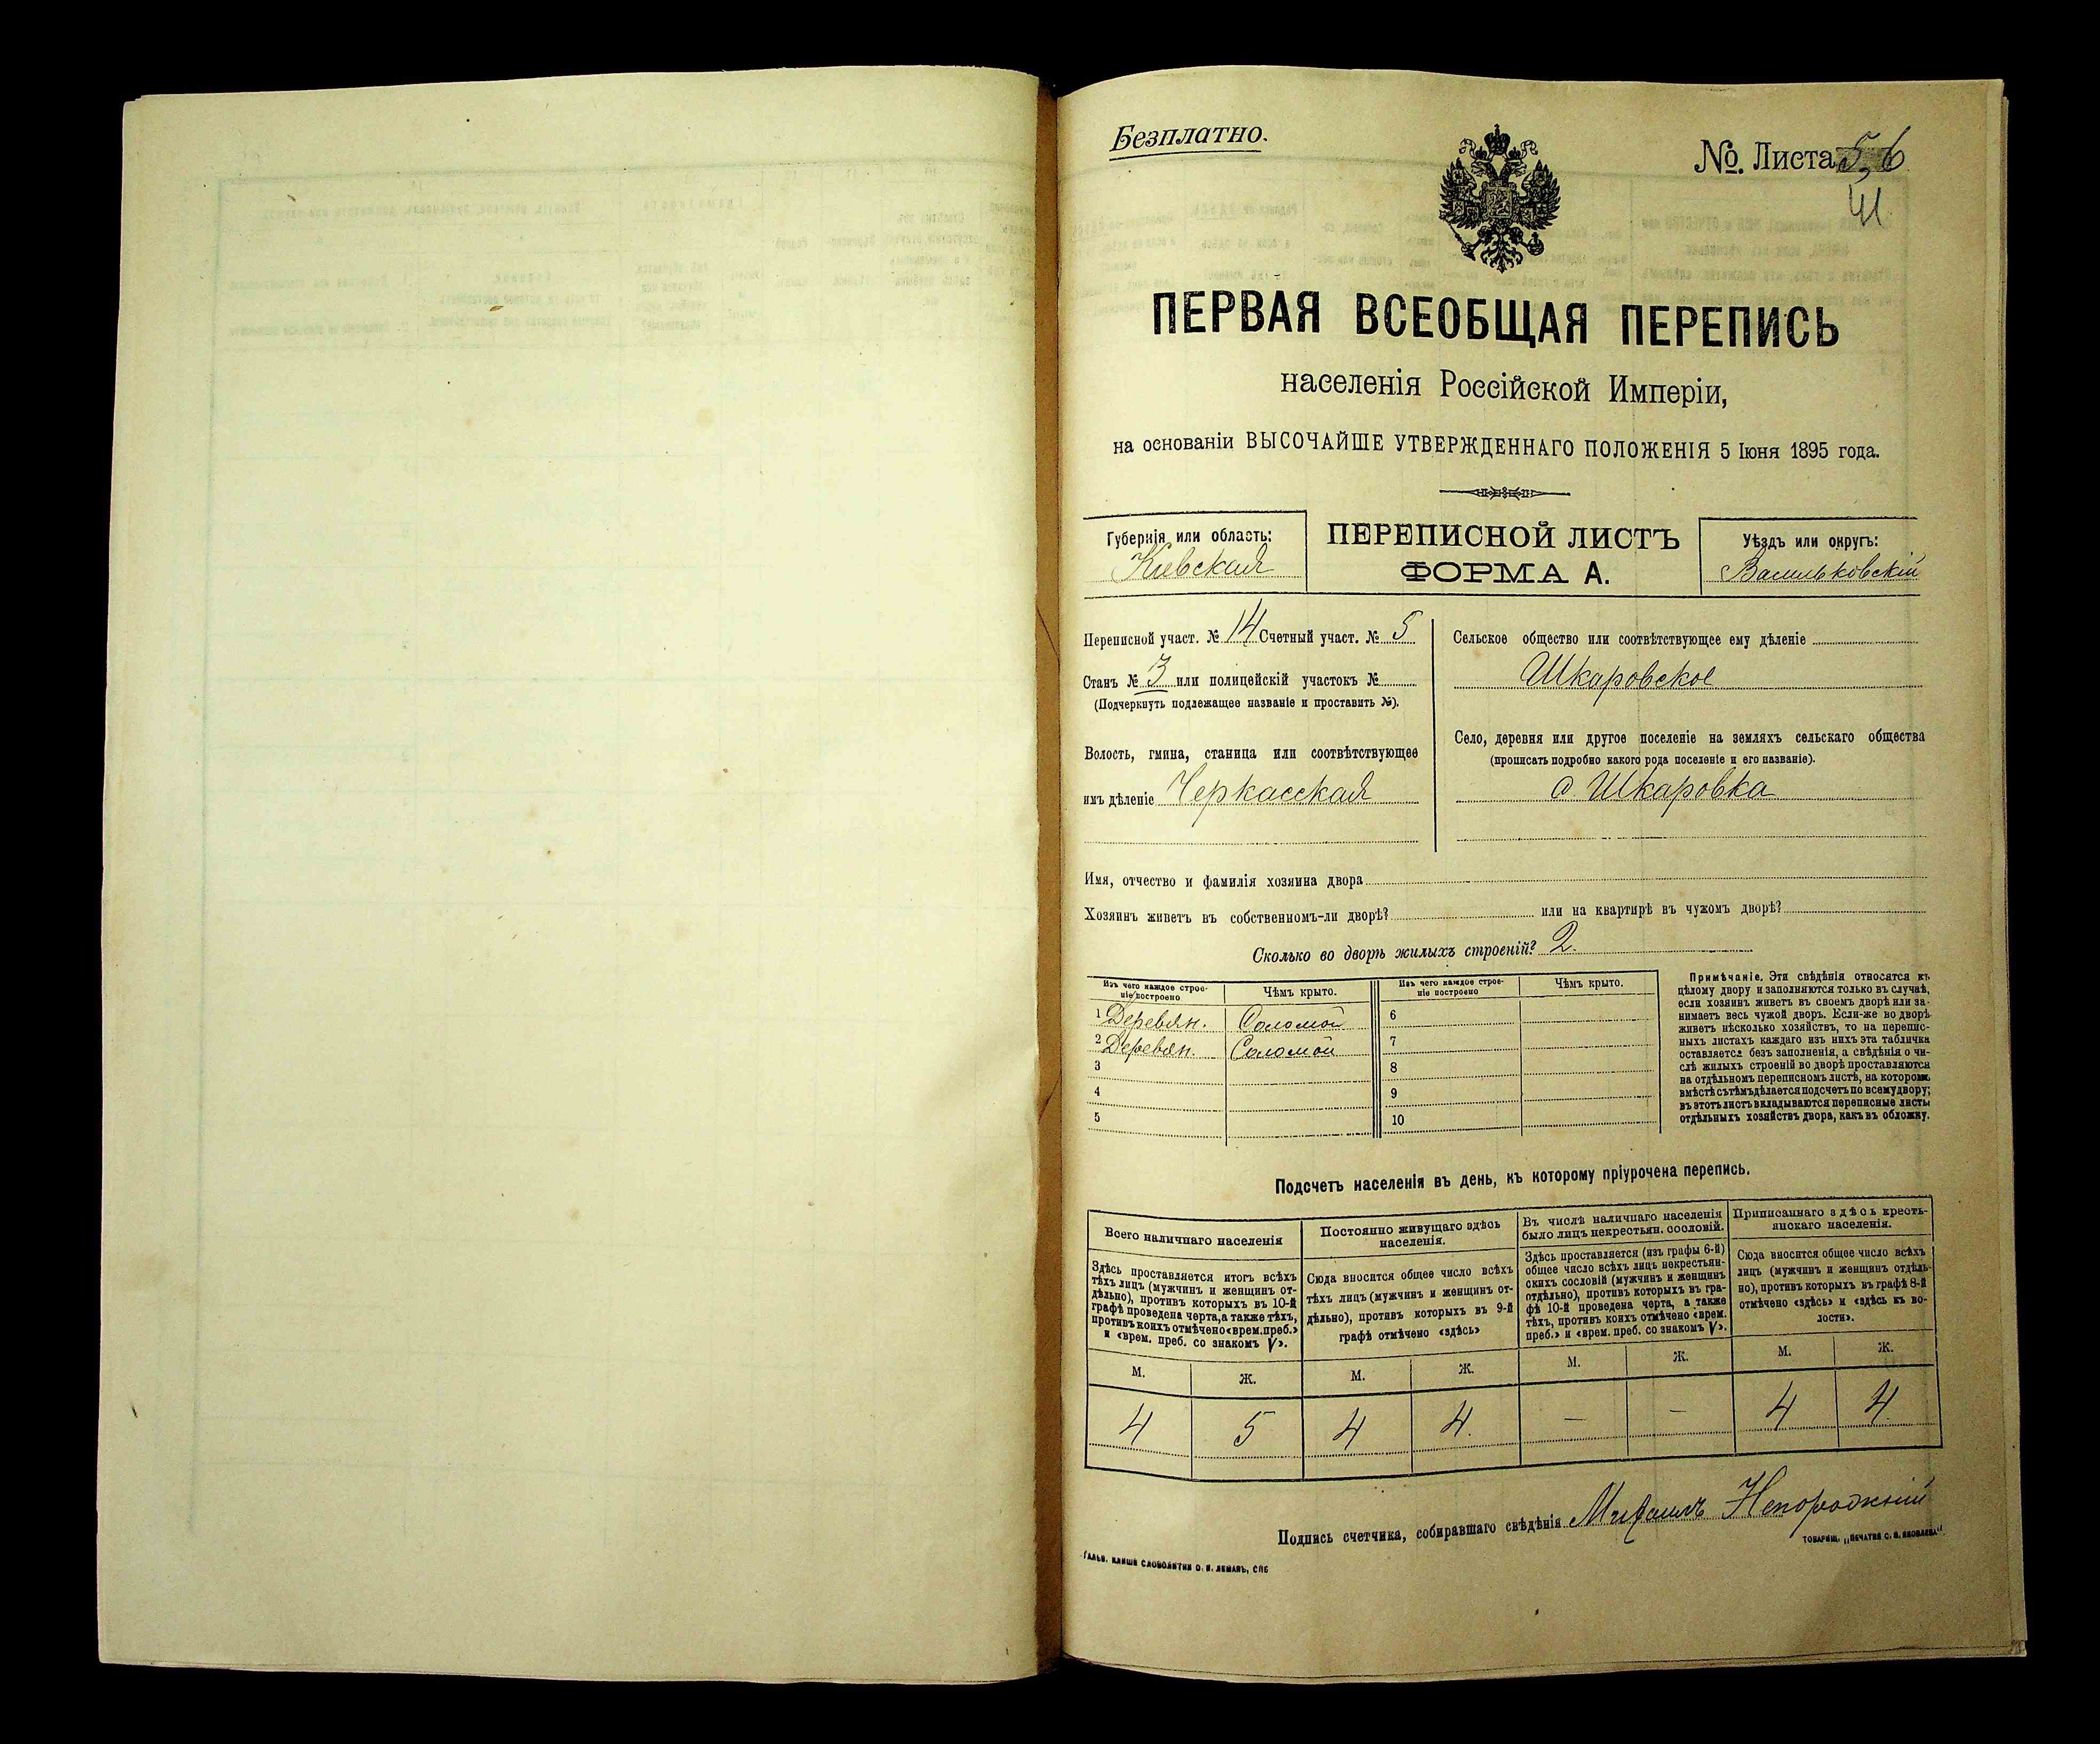 Безплатно.
№. Листа 5, 6
41
ПЕРВАЯ ВСЕОБЩАЯ ПЕРЕПИСЬ
населенія Россійской Имперіи,
на основаніи ВЫСОЧАЙШЕ УТВЕРЖДЕННАГО ПОЛОЖЕНІЯ 5 Іюня 1895 года.
Губернія или область:
Кіевская
ПЕРЕПИСНОЙ ЛИСТЪ
ФОРМА А.
Уѣздъ или округъ:
Васильковскій
Переписной участ. № 14 Счетный участ. № 5
Станъ № 3 или полицейскій участокъ №
(Подчеркнуть подлежащее названіе и проставить №).
Волость, гмина, станица или соотвѣтствующее
имъ дѣленіе Черкасская
Сельское общество или соотвѣтствующее ему дѣленіе
Шкаровское
Село, деревня или другое поселеніе на земляхъ сельскаго общества
(прописать подробно какого рода поселеніе и его названіе).
с. Шкаровка
Имя, отчество и фамилія хозяина двора
Хозяинъ живетъ въ собственномъ-ли дворѣ? или на квартирѣ въ чужомъ дворѣ?
Сколько во дворѣ жилыхъ строеній? 2.
Изъ чего каждое строе-
ніе построено
Чѣмъ крыто.
Изъ чего каждое строе-
ніе построено
Чѣмъ крыто.
1 Деревян. Соломой 6
2 Деревян. Соломой 7
3 8
4 9
5 10
Примѣчаніе. Эти свѣдѣнія относятся къ
цѣлому двору и заполняются только въ случаѣ,
если хозяинъ живетъ въ своемъ дворѣ или за-
нимаетъ весь чужой дворъ. Если-же во дворѣ
живетъ нѣсколько хозяйствъ, то на перепис-
ныхъ листахъ каждаго изъ нихъ эта табличка
оставляется безъ заполненія, а свѣдѣнія о чи-
слѣ жилыхъ строеній во дворѣ проставляются
на отдѣльномъ переписномъ листѣ, на которомъ
вмѣстѣ съ тѣмъ дѣлается подсчетъ по всему двору;
въ этотъ листъ вкладываются переписные листы
отдѣльныхъ хозяйствъ двора, какъ въ обложку.
Подсчетъ населенія въ день, къ которому пріурочена перепись.
Всего наличнаго населенія
Здѣсь проставляется итогъ всѣхъ
тѣхъ лицъ (мужчинъ и женщинъ от-
дѣльно), противъ которыхъ въ 10-й
графѣ проведена черта, а также тѣхъ,
противъ коихъ отмѣчено «врем. преб.»
и «врем. преб. со знакомъ V».
Постоянно живущаго здѣсь
населенія.
Сюда вносится общее число всѣхъ
тѣхъ лицъ (мужчинъ и женщинъ от-
дѣльно), противъ которыхъ въ 9-й
графѣ отмѣчено «здѣсь»
Въ числѣ наличнаго населенія
было лицъ некрестьян. сословій.
Здѣсь проставляется (изъ графы 6-й)
общее число всѣхъ лицъ некрестьян-
скихъ сословій (мужчинъ и женщинъ
отдѣльно), противъ которыхъ въ гра-
фѣ 10-й проведена черта, а также
тѣхъ, противъ коихъ отмѣчено «врем.
преб.» и «врем. преб. со знакомъ V».
Приписаннаго здѣсь кресть-
янскаго населенія.
Сюда вносится общее число всѣхъ
лицъ (мужчинъ и женщинъ отдѣль-
но), противъ которыхъ въ графѣ 8-й
отмѣчено «здѣсь» и «здѣсь къ во-
лости».
М. Ж. М. Ж. М. Ж. М. Ж.
4 5 4 4. — — 4 4
Подпись счетчика, собиравшаго свѣдѣнія Михаилъ Непорожній
ТОВАРИЩ. „ПЕЧАТНЯ С. П. ЯКОВЛЕВА“
ГАЛЬВ. КЛИШЕ СЛОВОЛИТНИ О. И. ЛЕМАНЪ, СПБ